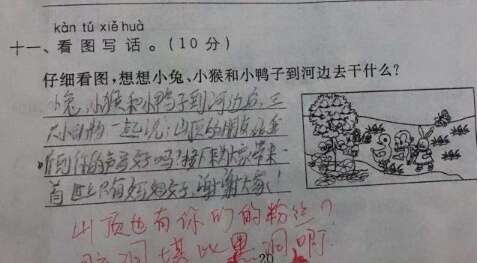 kàn tú xiě huà
十一、看图写话。(10分)
仔细看图,想想小兔、小猴和小鸭子到河边去干什么?
小兔、小猴和小鸭子到河边玩,三
大小动物一起说:山顶的朋友你能
听到你的声音好吗?接下来为大家带来一
首世上只有妈妈好,谢谢大家!
山顶也有你们的粉丝?
脑洞堪比黑洞啊
20